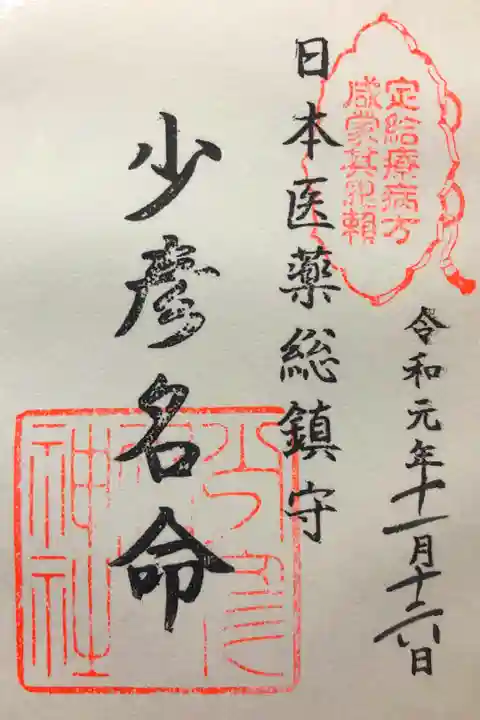 定給療病方
咸蒙其恩賴
令和元年十一月十六日
日本医薬総鎮守
少彦名命
少彦
名
神社